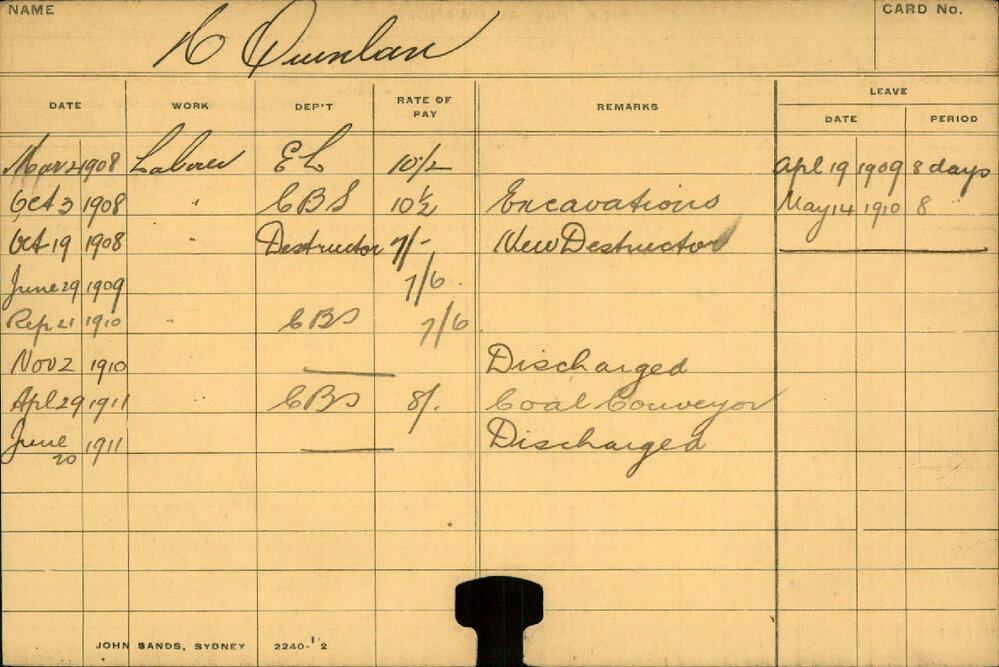 NAME
CARD No.
Quinlan
DATE WORK DEP'T RATE OF PAY REMARKS LEAVE
DATE PERIOD
1908 Labourer E L 10 1/2 Apl 19 1909 8 days
Oct 3 1908 " C B S 10 1/2 Excavations May 14 1910 8 "
Oct 19 1908 Destructor 7/- New Destructor
June 29 1909 7/6
Sep 21 1910 " C B S 7/6
Nov 2 1910 Discharged
Apl 29 1911 " C B S 8/- Coal Conveyor
June 20 1911 Discharged
JOHN SANDS, SYDNEY 2240-1/2